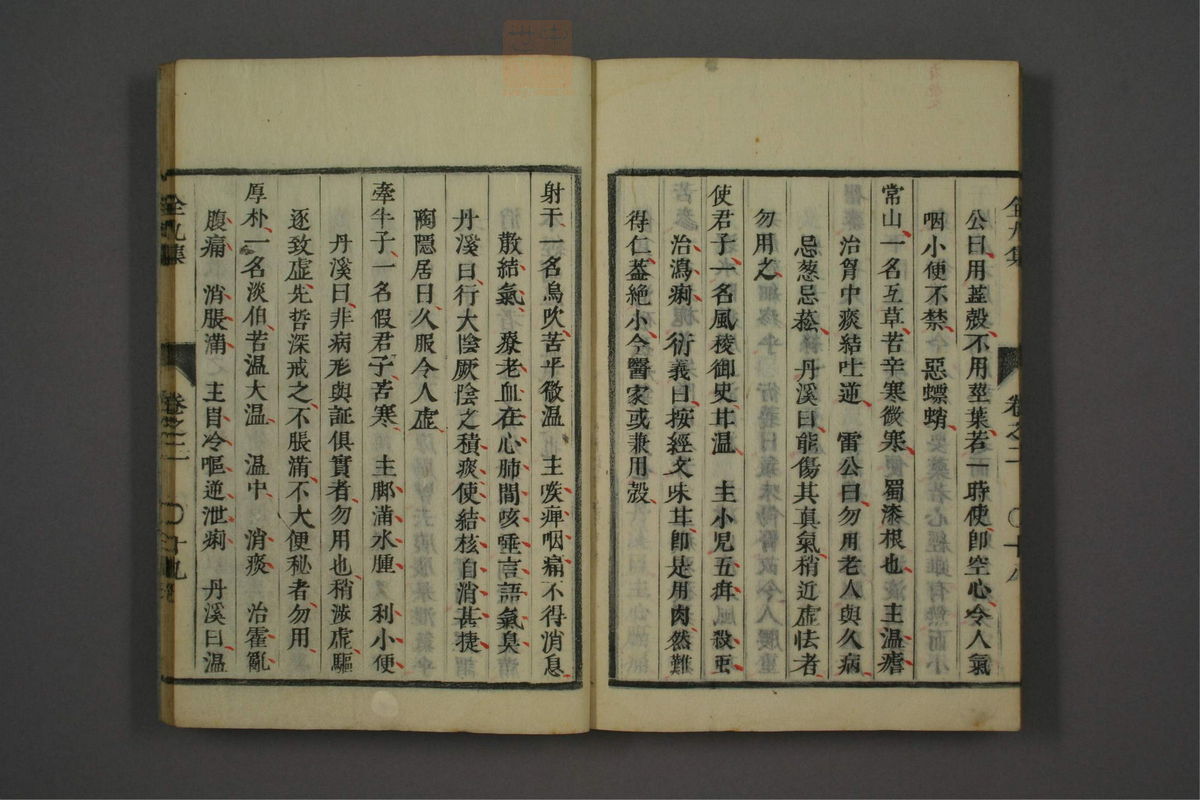 公曰用蓋殼不用莖葉若一時使即空心令人氣
咽小便不禁 惡螵蛸
常山一名互草苦辛寒微寒 蜀漆根也 主温瘧
治胷中痰結吐逆 雷公曰勿用老人與久病
忌葱忌菘 丹溪曰能傷其真氣稍近虚怯者
勿用之
使君子一名風稜御史甘温 主小児五疳 殺䖝
治瀉痢 衍義曰按經文味甘即是用肉然難
得仁葢絶小今醫家或兼用殼
卷之二
十八
射干一名烏吹苦平微温 主咳痺咽痛不得消息
散結氣 療老血在心肺間咳唾言語氣臭
丹溪曰行大陰厥陰之積痰使結核自消甚捷
陶隱居曰久服令人虚
牽牛子一名假君子苦寒 主脚滿水腫 利小便
丹溪曰非病形與証俱實者勿用也稍渉虚驅
逐致虚先哲深戒之不脹滿不大便秘者勿用
厚朴一名淡伯苦温大温 温中 消痰 治霍亂
腹痛 消脹滿 主胃冷嘔逆泄痢 丹溪曰温
全九集
卷之二
十九